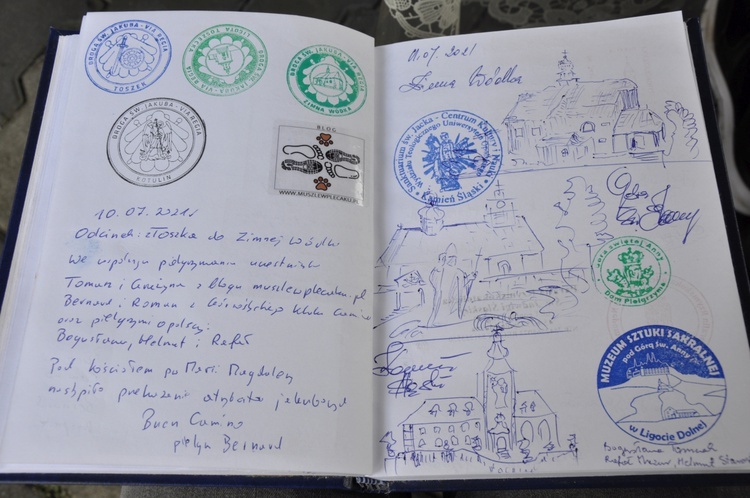 DROGA ŚW. JAKUBA - VIA REGIA
TOSZEK
DROGA ŚW. JAKUBA - VIA REGIA
LIGOTA TOSZECKA
DROGA ŚW. JAKUBA - VIA REGIA
ZIMNA WÓDKA
DROGA ŚW. JAKUBA - VIA REGIA
KOTULIN
BLOG
WWW.MUSZLEWPLECAKU.PL
10.07.2021r
Odcinek: z Toszka do Zimnej Wódki
We wspólnym pielgrzymowaniu uczestniczyli
Tomasz i Grażyna z blogu muszlewplecaku.pl
Bernard i Roman z Gliwickiego Klubu Camino
oraz pielgrzymi opolscy:
Bogusława, Helmut i Rafał
Pod kościołem pw Marii Magdaleny
nastąpiło przekazanie atrybutu jakubowego
Buen Camino
pielgrzym Bernard
11.07.2021
Zimna Wódka
Sanktuarium św. Jacka - Centrum Kultury i Nauki
Wydziału Teologicznego Uniwersytetu Opolskiego
Kamień Śląski
Góra
Św. Anny
Góra Świętej Anny
Dom Pielgrzyma
Kamień
Śląski
MUZEUM SZTUKI SAKRALNEJ
pod Górą Św. Anny
w Ligocie Dolnej
Rafał Mazur, Helmut